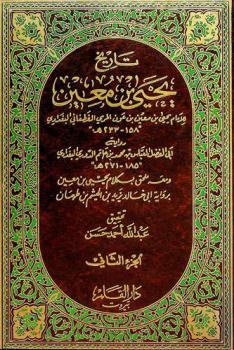 تاريخ
يحيى بن معين
للإمام يحيى بن معين بن عون المري الغطفاني البغدادي
١٥٨ - ٢٣٣ هـ
رواية
أبي الفضل العباس بن محمد بن حاتم الدوري البغدادي
١٨٥ - ٢٧١ هـ
ومعه ملحق بكلام يحيى بن معين
برواية أبي خالد يزيد بن الهيثم بن طهمان
تحقيق
عبد الله أحمد حسن
الجزء الثاني
دار القلم
بيروت